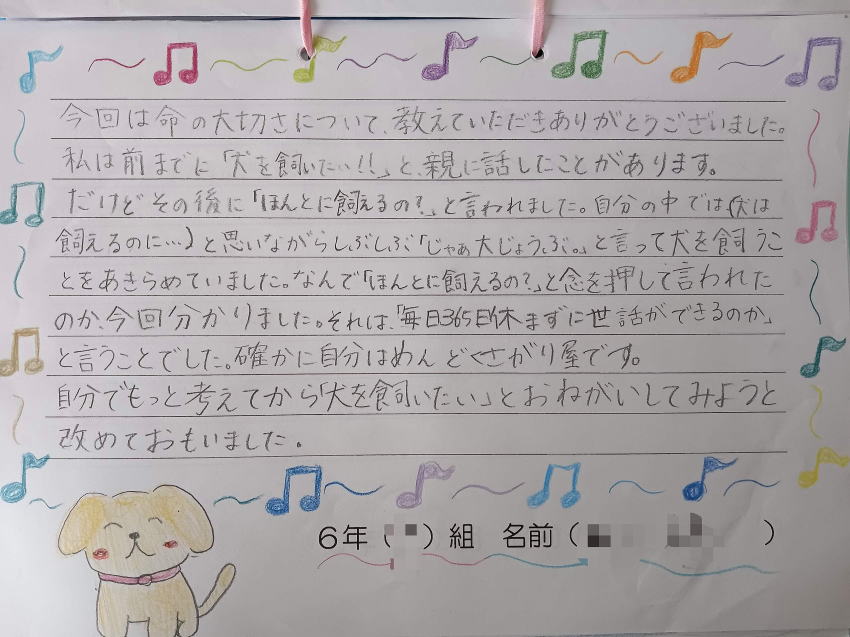 今回は命の大切さについて、教えていただきありがとうございました。
私は前までに「犬を飼いたい!!」と、親に話したことがあります。
だけどその後に「ほんとに飼えるの?」と言われました。自分の中では(犬は
飼えるのに…)と思いながらしぶしぶ「じゃぁ大じょうぶ。」と言って犬を飼うこ
とをあきらめていました。なんで「ほんとに飼えるの?」と念を押して言われた
のか、今回分かりました。それは、「毎日365日休まずに世話ができるのか」
と言うことでした。確かに自分はめんどくさがり屋です。
自分でもっと考えてから「犬を飼いたい」とおねがいしてみようと
改めておもいました。
6年( )組 名前( )